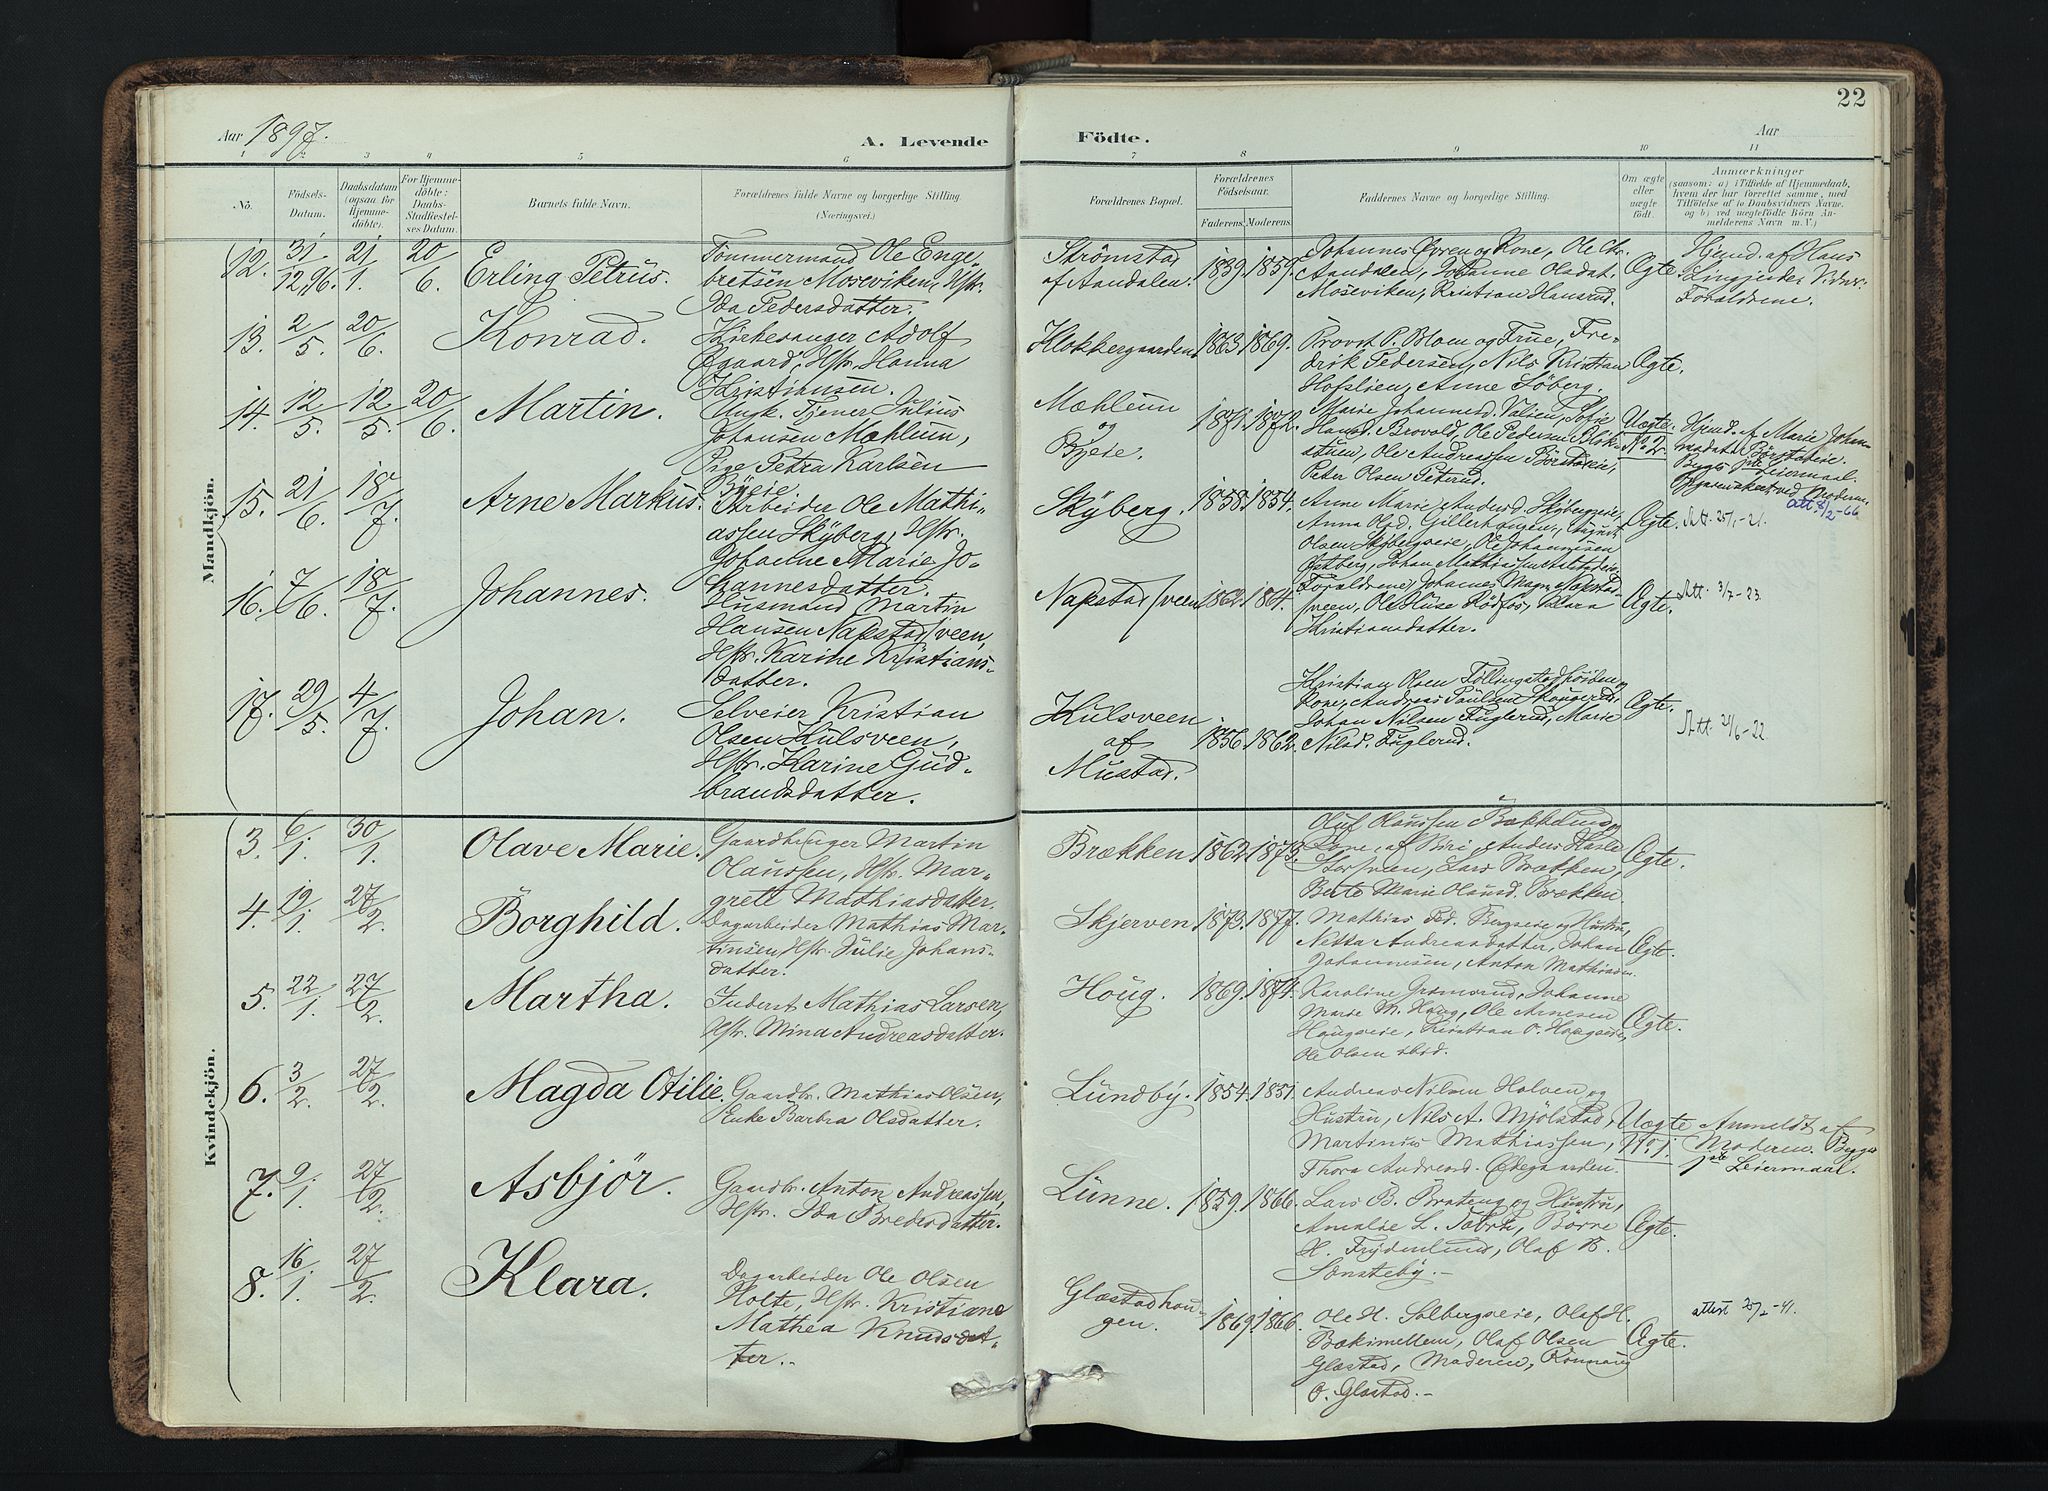 22
Aar 1897.
A. Levende Födte.
Aar
1 2 3 4 5 6 7 8 9 10 11
No.
Födsels-
Datum.
Daabsdatum
(ogsaa for
Hjemme-
döbte).
For Hjemme-
döbte:
Daabs-
Stadfæstel-
ses Datum.
Barnets fulde Navn.
Forældrenes fulde Navne og borgerlige Stilling.
(Næringsvei.)
Forældrenes Bopæl.
Forældrenes
Födselsaar.
Faderens. Moderens.
Faddernes Navne og borgerlige Stilling.
Om ægte
eller
uægte
födt.
Anmærkninger
(saasom: a) i Tilfælde af Hjemmedaab,
hvem der har forrettet samme, med
Tilföielse af to Daabsvidners Navne,
og b) ved uægtefödte Börn An-
melderens Navn m. V.)
Mandkjön.
12. 31/12 96. 21/1. 20/6. Erling Petrus.
Tømmermand Ole Enge-
bretsen Moseviken, Hstr.
Ida Pedersdatter.
Strømstad
af Aandalen.
1839. 1859.
Johannes Øvren og Kone, Ole Chr.
Aandalen, Johanne Olsdat.
Moseviken, Kristian Hansrud.
Ægte.
Hjemd. af Hans
Forældrene.
13. 2/5. 20/6. Konrad.
Kirkesanger Adolf
Øgaard, Hstr. Hanna
Kristiansen.
Klokkergaarden
1863 1869.
Provst P. Blom og Frue, Fre-
drik Pedersen, Nils Kristian
Hofslien, Anne Söberg.
Ægte.
14. 12/5. 12/5. 20/6. Martin.
Ungk. Tjener Julius
Johansen Mæhlum,
Pige Petra Karlsen
Byeie
Mæhlum
og
Byeie.
1871. 1872.
Marie Johannesd. Valsen, Sofie
Hansd. Brovold, Ole Pedersen
stuen, Ole Andreassen Börstaeie,
Peter Olsen Peterud.
Uægte.
No 2.
Hjemd. af Marie Johan-
Börstaeie.
Begges 1ste Leiermaal.
Moderen.
att. 8/2-66
15. 21/6. 18/7. Arne Markus.
Arbeider Ole Mathi-
assen Skyberg, Hstr.
Johanne Marie Jo-
hannesdatter.
Skyberg.
1858. 1854.
Anne Marie Andersd. Skybergeie,
Anna Olsd. Gillerhaugen, August
Olsen Skybergseie, Ole Johannesen
Østberg, Johan Mathiassen
Ægte.
Att. 25/1-21.
16. 7/6. 18/7. Johannes.
Husmand Martin
Hansen Napstadsveen,
Hstr. Karine Kristians-
datter.
Napstadsveen
1862. 1864.
Forældrene, Johannes Magn. Napstad-
sveen, Ole Huse Rødfos, Klara
Kristiansdatter.
Ægte.
Att. 3/7-23.
17. 29/5. 4/7. Johan.
Selveier Kristian
Olsen Kulsveen,
Hstr. Karine Gud-
brandsdatter.
Kulsveen
af
Mustad.
1856. 1862.
Kristian Olsen
Kone, Andreas Paulsen
Johan Nilsen Fuglerud, Marie
Nilsd. Fuglerud.
Ægte.
Att. 21/6-22.
Kvindekjön.
3. 6/1. 30/1. Olave Marie.
Gaardbruger Martin
Olaussen, Hstr. Mar-
grete Mathiasdatter.
Brækken
1862. 1873.
Oluf Olaussen Bækkelund og
Kone, af Biri, Anders Hasle
Storsveen, Lars Brækken,
Berte Marie Olausd. Brækken.
Ægte.
4. 19/1. 27/2. Borghild.
Dagarbeider Mathias Mar-
tinsen, Hstr. Julie Johans-
datter.
Skjerven
1873. 1877.
Mathias Ped. Bergseie og Hustru,
Netta Andreasdatter, Johan
Johannesen, Anton Mathiasen.
Ægte.
5. 22/1. 27/2. Martha.
Inderst Mathias Larsen,
Hstr. Mina Andreasdatter.
Houg.
1869. 1874.
Karoline Gromsrud, Johanne
Marie M. Houg, Ole Arnesen
Hougseie, Kristian O. Hougseie,
Ole Olsen ibid.
Ægte.
6. 3/2. 27/2. Magda Otilie.
Gaardbr. Mathias Olsen,
Enke Barbra Olsdatter.
Lundby.
1854. 1851.
Andreas Nilsen Holven og
Hustru, Nils A. Mjölstad,
Martinius Mathiassen,
Thora Andreasd. Ødegaarden.
Uægte
No 1.
Anmeldt af
Moderen. Begges
1ste Leiermaal.
7. 9/1. 27/2. Asbjör.
Gaardbr. Anton Andreassen,
Hstr. Ida Bredesdatter.
Lunne.
1859. 1866.
Lars B. Brateng og Hustru,
Amalie L. Børne
H. Frydenlund, Olaf B.
Sønsteby.-
Ægte.
8. 16/1. 27/2. Klara.
Dagarbeider Ole Olsen
Holte, Hstr. Kristiane
Mathea Knudsdat-
ter.-
Glæstadhou-
gen.
1869. 1866.
Ole H. Solbergseie, Olaf H.
Bækimellem, Olaf Olsen
Glæstad, Moderen, Rønnaug
O. Glæstad.-
Ægte.
attest 25/2-41.